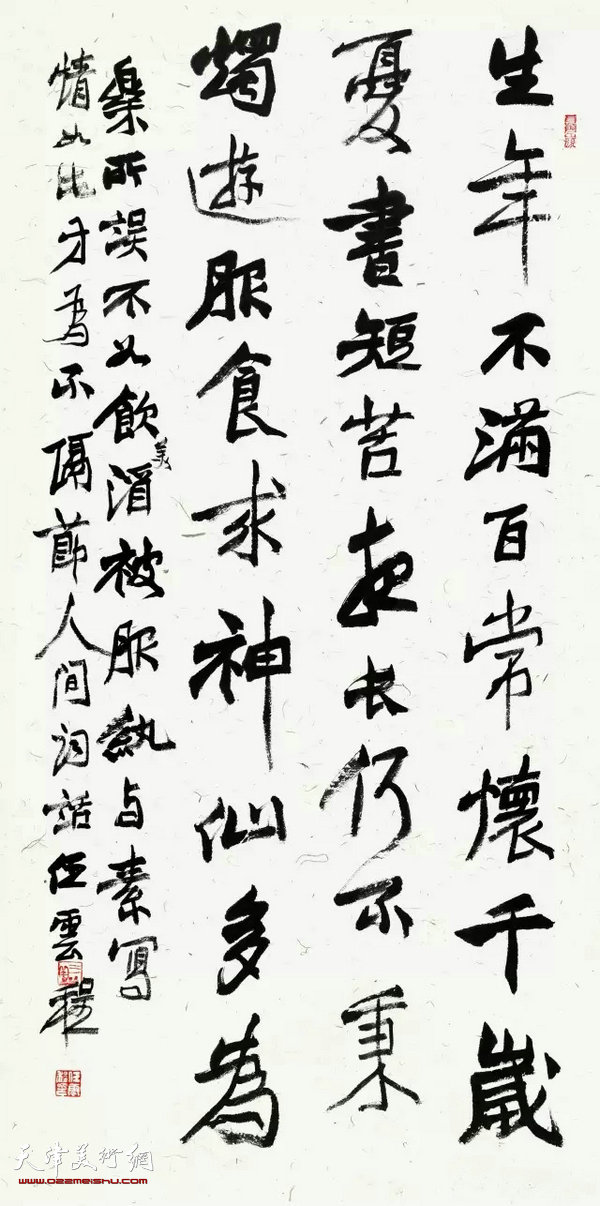 生年不滿百常懷千歲
憂書短苦夜长何不秉
燭遊服食求神仙多為
樂所誤不如飲美酒被服紈与素寫
情如此方為不隔節人间詞話任雲程
天津美術網
www.022meishu.com